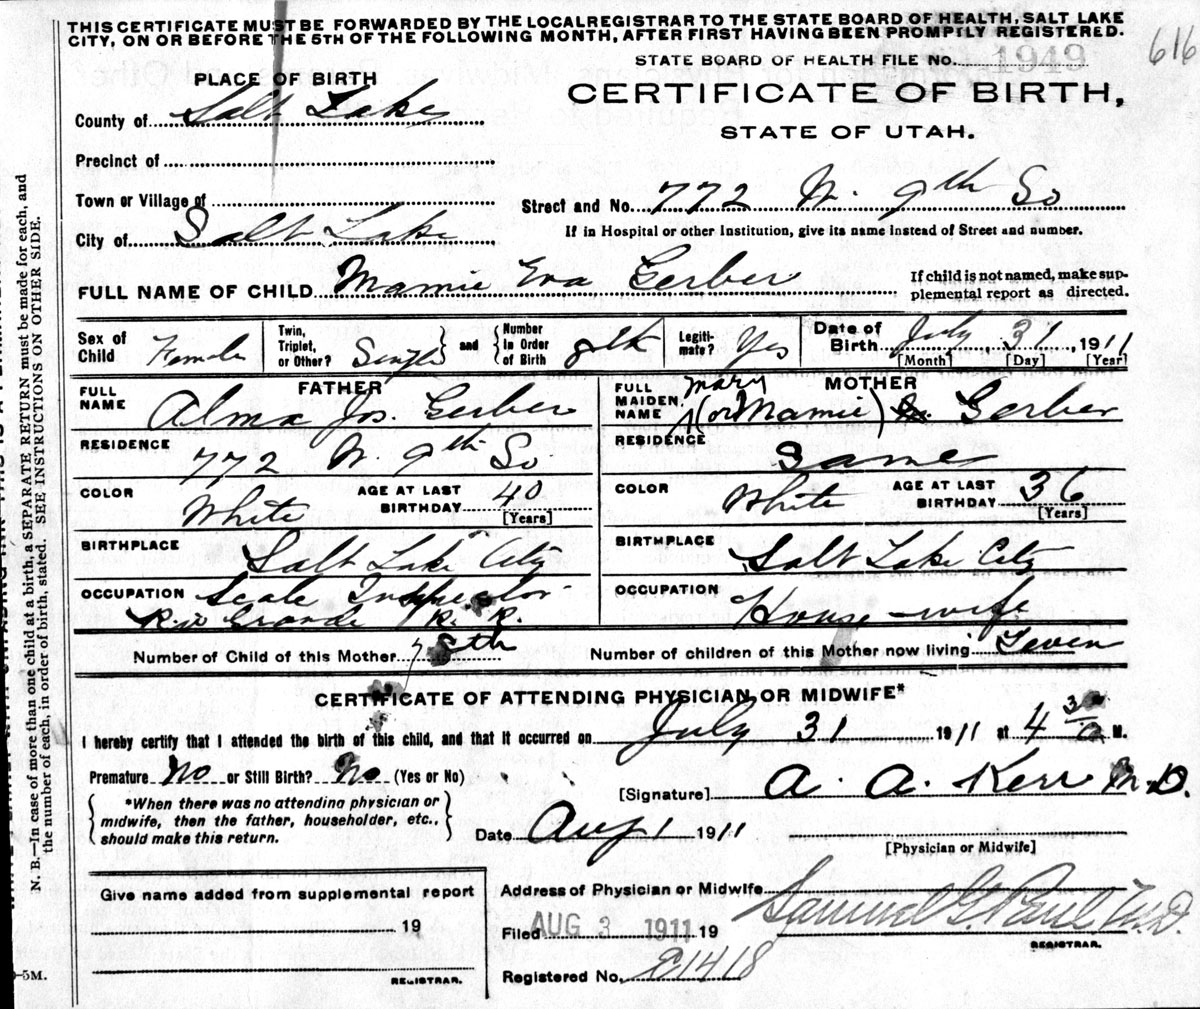 THIS CERTIFICATE MUST BE FORWARDED BY THE LOCAL REGISTRAR TO THE STATE BOARD OF HEALTH, SALT LAKE
CITY, ON OR BEFORE THE 5TH OF THE FOLLOWING MONTH, AFTER FIRST HAVING BEEN PROMPTLY REGISTERED.
616
STATE BOARD OF HEALTH FILE No. 1949
PLACE OF BIRTH
CERTIFICATE OF BIRTH,
STATE OF UTAH.
County of Salt Lake
Precinct of
Town or Village of
Street and No. 772 W. 9th So
City of Salt Lake
If in Hospital or other Institution, give its name instead of Street and number.
FULL NAME OF CHILD Mamie Eva Gerber
If child is not named, make sup-
plemental report as directed.
Sex of Child Female
Twin, Triplet, or Other? Single and Number in Order of Birth 8th
Legiti-mate? Yes
Date of Birth July 31, 1911
[Month] [Day] [Year]
FATHER
FULL NAME Alma Jos. Gerber
RESIDENCE 772 W. 9th So
COLOR White AGE AT LAST BIRTHDAY 40 [Years]
BIRTHPLACE Salt Lake City
OCCUPATION Scale Inspector
Rio Grande R. R.
MOTHER
FULL MAIDEN NAME Mary (or Mamie) Gerber
RESIDENCE Same
COLOR White AGE AT LAST BIRTHDAY 36 [Years]
BIRTHPLACE Salt Lake City
OCCUPATION House-wife
Number of Child of this Mother 8th
Number of children of this Mother now living Seven
CERTIFICATE OF ATTENDING PHYSICIAN OR MIDWIFE*
I hereby certify that I attended the birth of this child, and that it occurred on July 31 1911 at 4 30 M.
Premature No or Still Birth? No (Yes or No)
*When there was no attending physician or
midwife, then the father, householder, etc.,
should make this return.
[Signature] A. A. Kerr M.D.
Date Aug 1 1911
[Physician or Midwife]
Give name added from supplemental report
19
REGISTRAR.
Address of Physician or Midwife
Filed AUG 3 1911 19
Samuel G. Paul M.D.
REGISTRAR.
Registered No. 1418
N. B.—In case of more than one child at a birth, a SEPARATE RETURN must be made for each, and
the number of each, in order of birth, stated. SEE INSTRUCTIONS ON OTHER SIDE.
-5M.